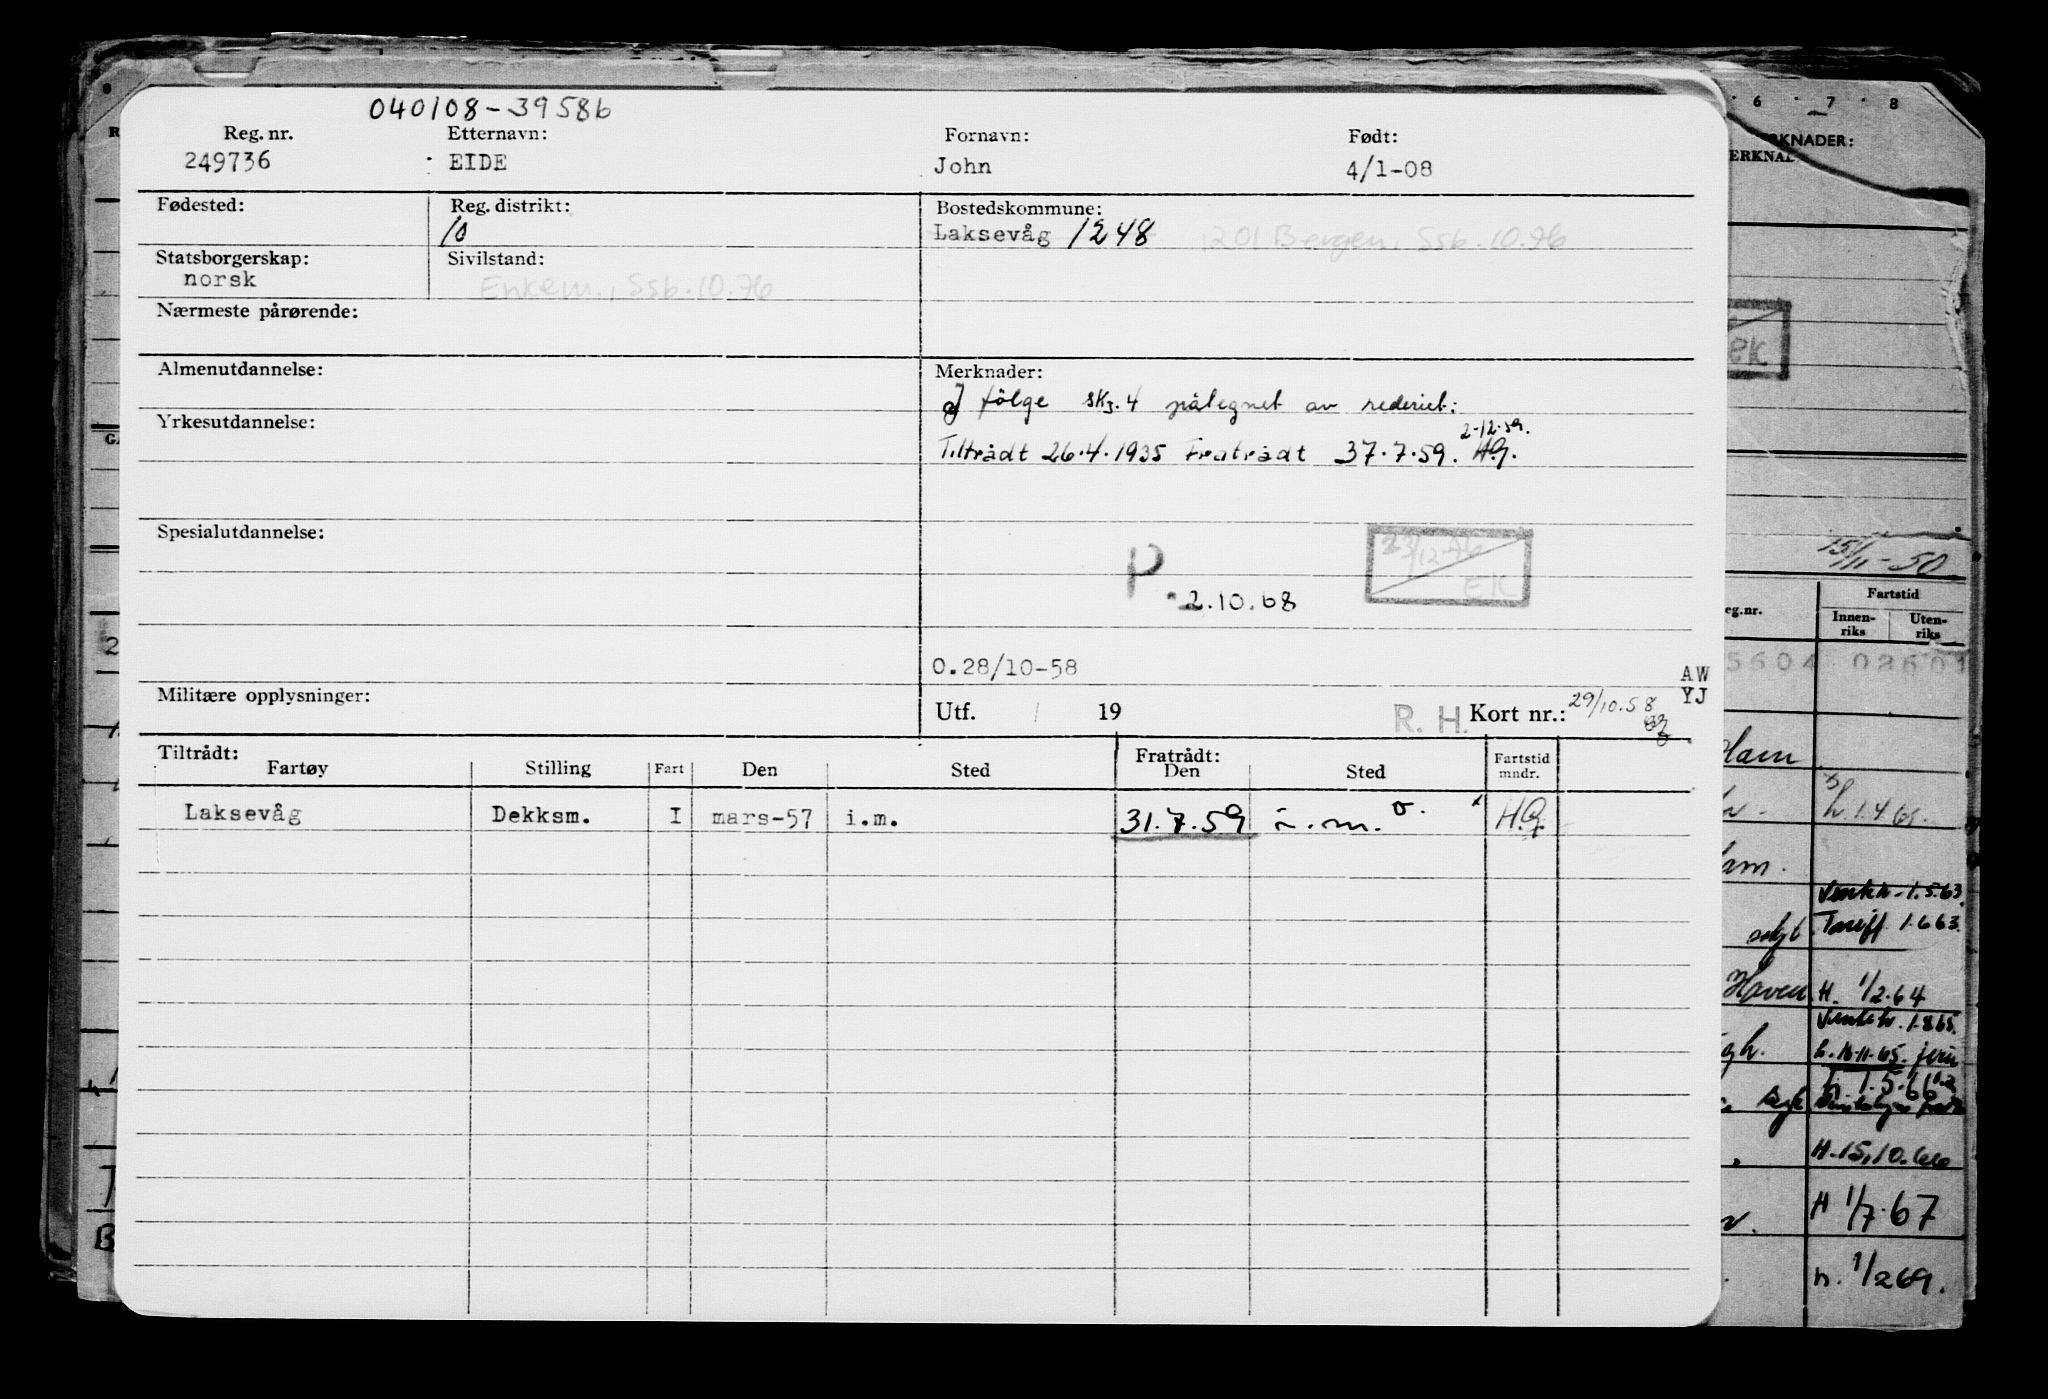 040108-39586
Reg. nr. Etternavn: Fornavn: Født:
249736 EIDE John 4/1-08
Fødested: Reg. distrikt: Bostedskommune:
10 Laksevåg 1248 1201 Bergen, Ssb. 10.76
Statsborgerskap: Sivilstand:
norsk Enkem., Ssb. 10.76
Nærmeste pårørende:
Almenutdannelse: Merknader:
J følge sKj. 4 pålegnet av rederiet:
Yrkesutdannelse:
2-12-59.
Tiltrådt 26.4.1935 Fratrådt 37.7.59. H.G.
Spesialutdannelse:
23/12-76
EK
P
2.10.68
0.28/10-58
AW
YJ
Militære opplysninger:
Utf. / 19 R. H. Kort nr.: 29/10.58
Tiltrådt: Fratrådt:
Fartøy Stilling Fart Den Sted Den Sted Fartstid mndr.
Laksevåg Dekksm. I mars-57 i.m. 31.7.59 i.m. o. H.G.
6 7 8
RKNADER:
ERKNAD
EK
15/11-50
eg.nr. Fartstid
Innen-riks Uten-riks
5604 02601
Ham
h 1.4.61.
am.
1.5.63
Tariff 1.6.63.
solgt
Haven H. 1/2.64
1.8.65.
h. 16.11.65.
h 1.5.66
H. 15,10.66
H 1/7.67
n. 1/2 69.